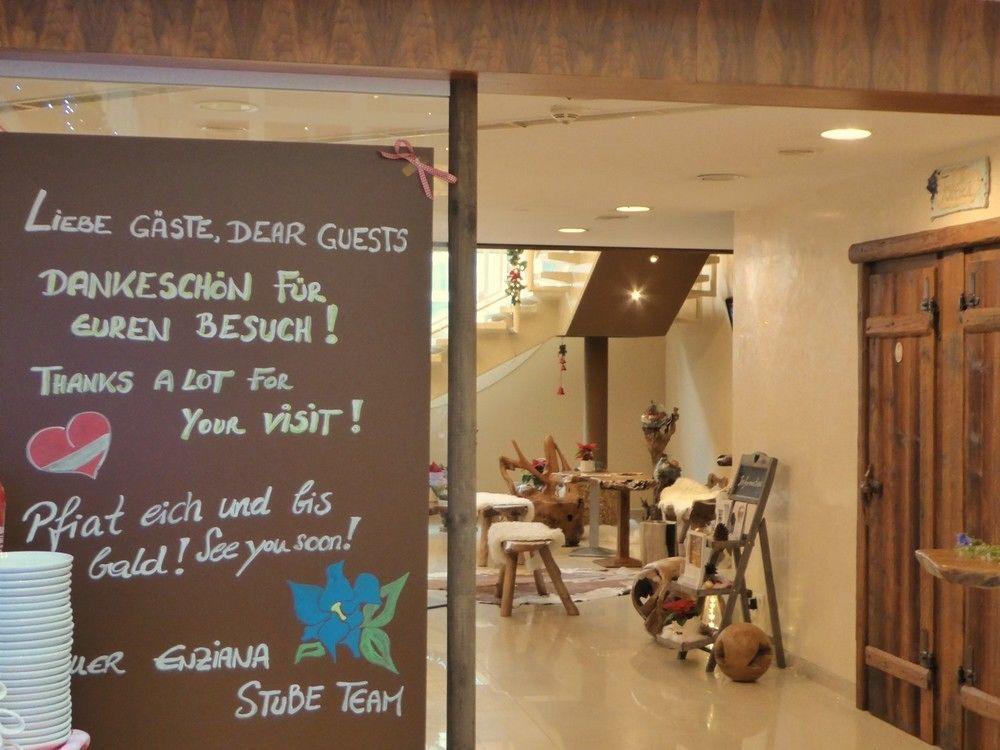 LIEBE GÄSTE, DEAR GUESTS
DANKESCHÖN FÜR
EUREN BESUCH!
THANKS A LOT FOR
YOUR VISIT!
Pfiat eich und bis
bald! See you soon!
ENZIANA
STUBE TEAM